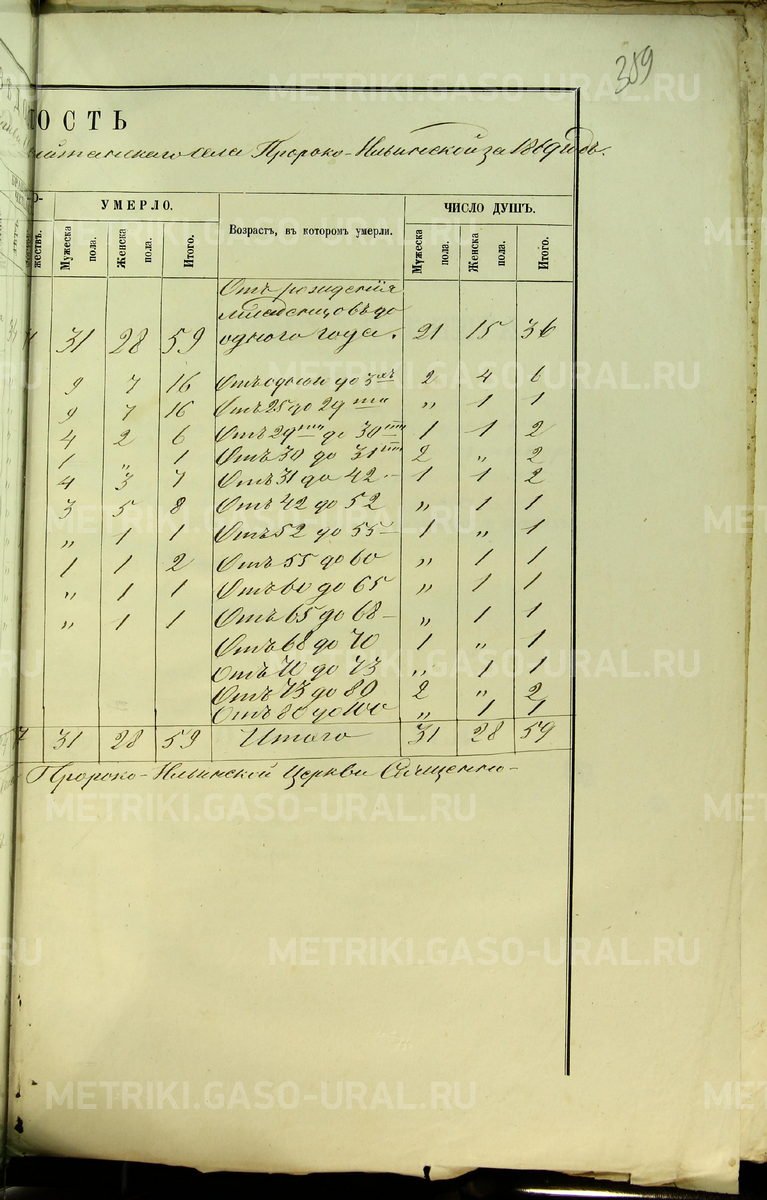 389
ОСТЬ
села Пророко-Ильинской за 1869 годъ.
УМЕРЛО. Возрастъ, въ которомъ умерли. ЧИСЛО ДУШЪ.
жествъ. Мужеска пола. Женска пола. Итого. Мужеска пола. Женска пола. Итого.
Отъ рожденія
младенцовъ до
31 28 59 одного года. 21 15 36
9 7 16 Отъ одного до 3хъ 2 4 6
9 7 16 Отъ 25 до 29 „ 1 1
4 2 6 Отъ 29 до 30 1 1 2
1 „ 1 Отъ 30 до 31 2 „ 2
4 3 7 Отъ 31 до 42 1 1 2
3 5 8 Отъ 42 до 52 „ 1 1
„ 1 1 Отъ 52 до 55 1 „ 1
1 1 2 Отъ 55 до 60 „ 1 1
„ 1 1 Отъ 60 до 65 „ 1 1
„ 1 1 Отъ 65 до 68 „ 1 1
Отъ 68 до 70 1 „ 1
Отъ 70 до 73 „ 1 1
Отъ 73 до 80 2 „ 2
Отъ 80 до 100 „ 1 1
7 31 28 59 Итого 31 28 59
Пророко-Ильинской Церкви Священно-
METRIKI.GASO-URAL.RU